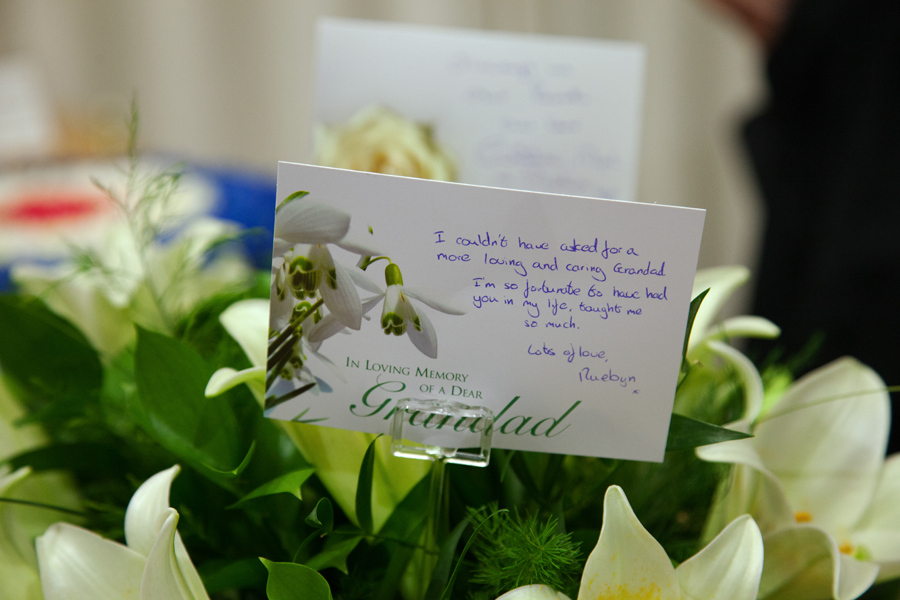 I couldn't have asked for a
more loving and caring Grandad.
I'm so fortunate to have had
you in my life, taught me
so much.
Lots of love,
Ruebyn x
IN LOVING MEMORY
OF A DEAR
Grandad